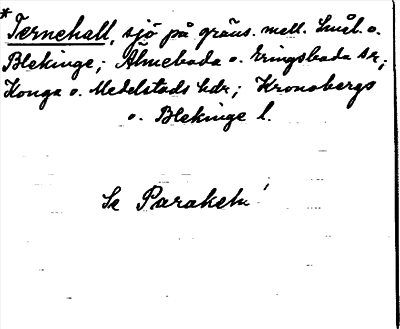 * Ternehall, sjö på gräns. mell. Smål. o.
Blekinge; Älmeboda o. Eringsboda sr,;
Konga o. Medelstads hdr; Kronobergs
o. Blekinge l.
Se Paraketu!